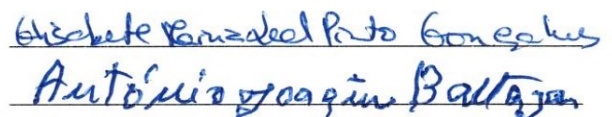 Elisabete Pinto Gonçalves
António Joaquim Baltazar